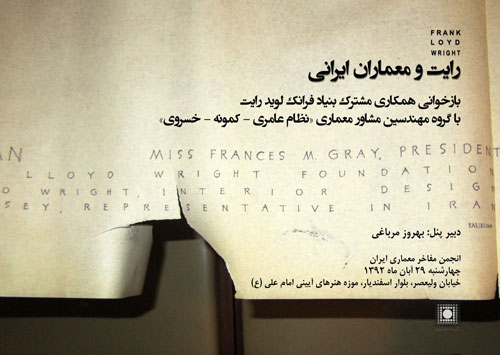 FRANK
LLOYD
WRIGHT
رایت و معماران ایرانی
بازخوانی همکاری مشترک بنیاد فرانک لوید رایت
با گروه مهندسین مشاور معماری «نظام عامری - کمونه - خسروی»
AN MISS FRANCES M. GRAY, PRESIDENT
LLOYD WRIGHT FOUNDATION
D WRIGHT, INTERIOR DESIG
SEY, REPRESENTATIVE IN IRAN
TALIESIN
دبیر پنل: بهروز مرباغی
انجمن مفاخر معماری ایران
چهارشنبه ۲۹ آبان ماه ۱۳۹۲
خیابان ولیعصر، بلوار اسفندیار، موزه هنرهای آیینی امام علی (ع)